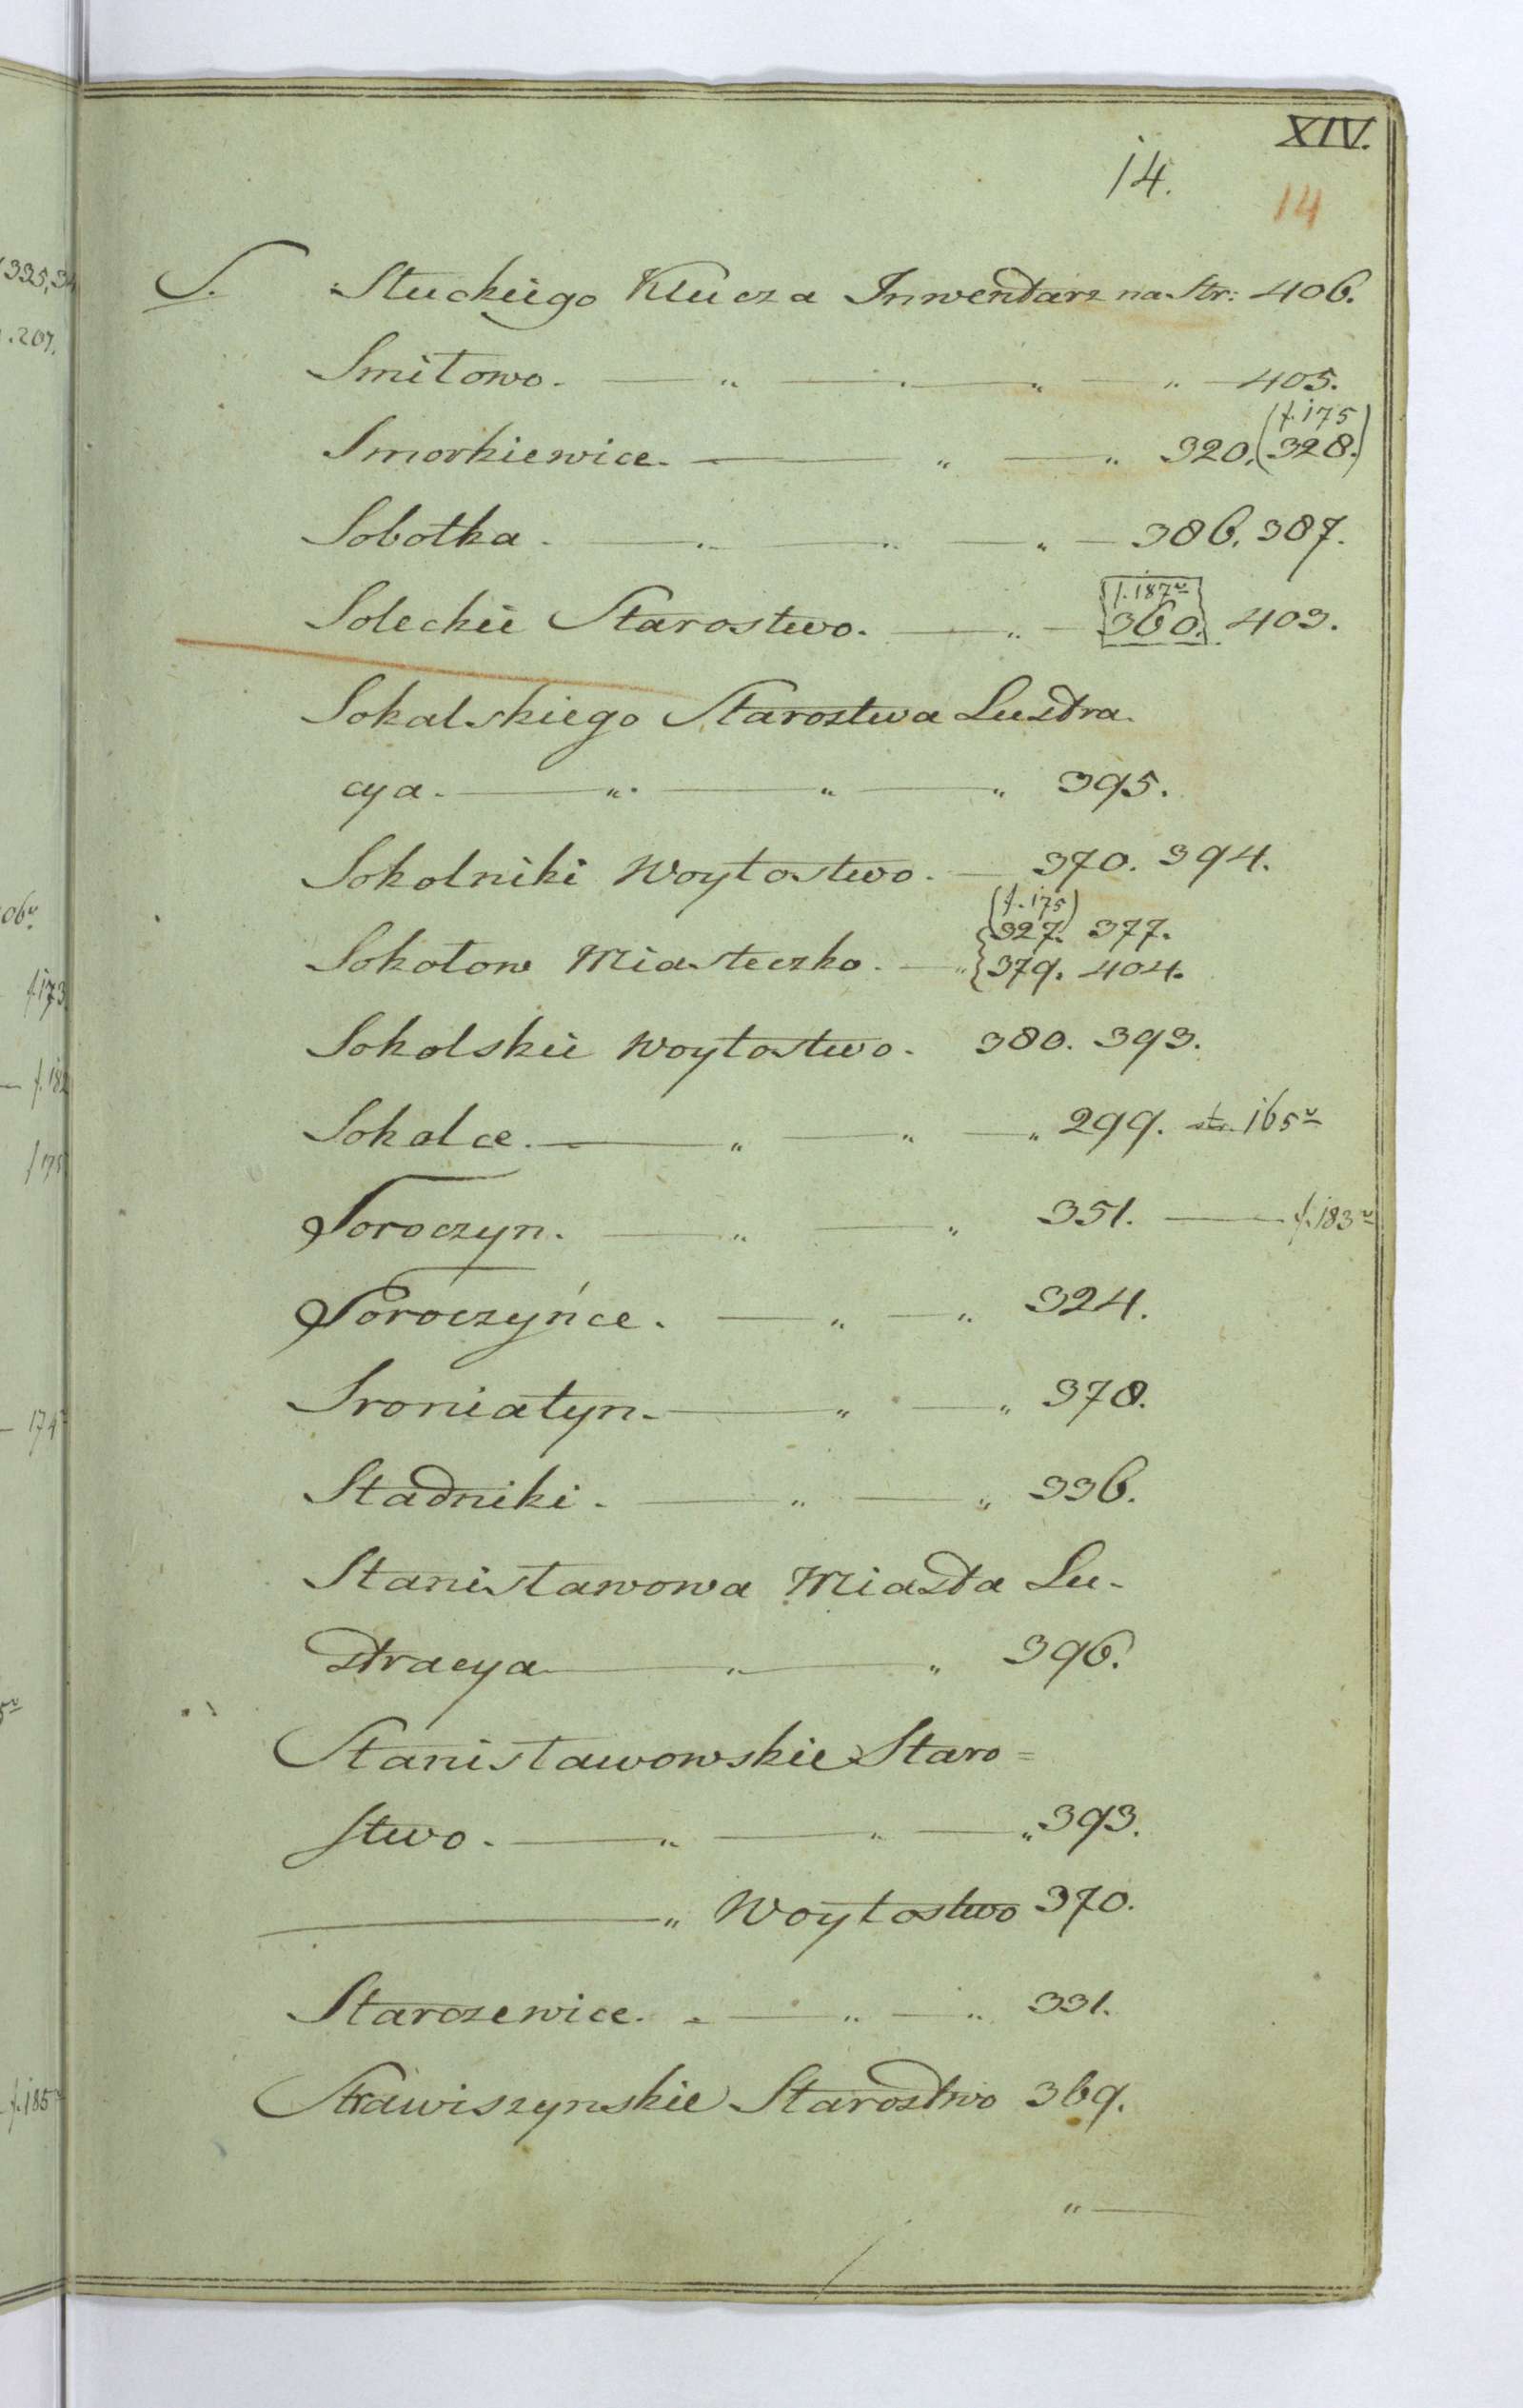 XIV.
14.
14
S. Słuckiego Klucza Inwentarz na Str: 406.
Smitowo. — „ — „ — „ — 405.
(f. 175)
Smorkiewice. — „ — „ 320. (328.)
Sobotka. — „ — „ — „ — 386. 387.
f. 187v
Soleckie Starostwo. — „ — 360. 403.
Sokalskiego Starostwa Lustra-
cya. — „ — „ — „ 395.
Sokolniki Woytostwo. — 370. 394.
(f. 175)
327. 377.
Sokołow Miasteczko. — „ 379. 404.
Sokolskie Woytostwo. 380. 393.
Sokolce. — „ — „ — „ 299. 165v
Soroczyn. — „ — „ 351. — f. 183v
Soroczyńce. — „ — „ 324.
Sroniatyn. — „ — „ 378.
Stadniki. — „ — „ 336.
Stanisławowa Miasta Lu-
stracya — „ — „ 396.
Stanisławowskie Staro=
stwo. — „ — „ — „ 393.
— „ Woytostwo 370.
Starczewice. — „ — „ 331.
Stawiszynskie Starostwo 369.
„ —
335, 34
. 207.
06v
f. 173
— f. 182
f 175
— 174v
f. 185v